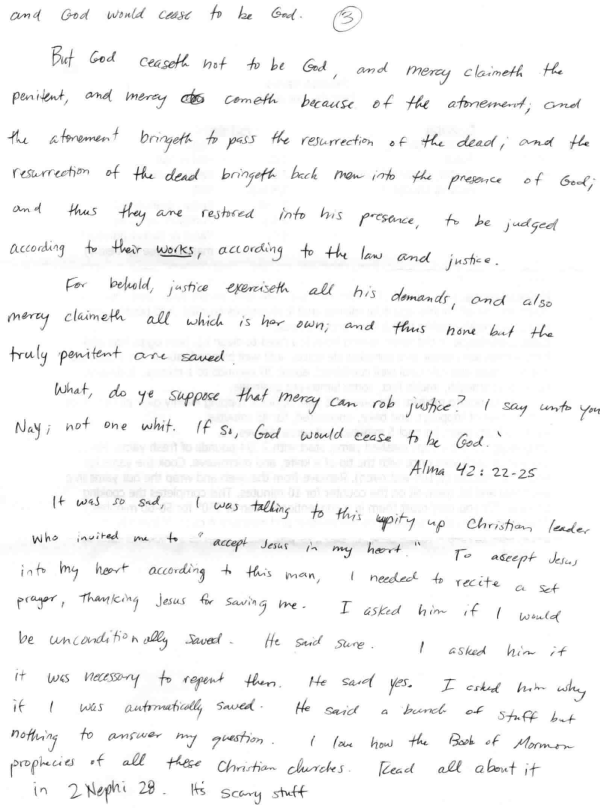 and God would cease to be God. 3
But God ceaseth not to be God, and mercy claimeth the
penitent, and mercy cometh because of the atonement; and
the atonement bringeth to pass the resurrection of the dead; and the
resurrection of the dead bringeth back men into the presence of God;
and thus they are restored into his presence, to be judged
according to their works, according to the law and justice.
For behold, justice exerciseth all his demands, and also
mercy claimeth all which is her own; and thus none but the
truly penitent are saved.
What, do ye suppose that mercy can rob justice? I say unto you
Nay; not one whit. If so, God would cease to be God."
Alma 42:22-25
It was so sad, I was talking to this uppity up Christian leader
who invited me to "accept Jesus in my heart." To accept Jesus
into my heart according to this man, I needed to recite a set
prayer, Thanking Jesus for saving me. I asked him if I would
be unconditionally saved. He said sure. I asked him if
it was necessary to repent then. He said yes. I asked him why
if I was automatically saved. He said a bunch of stuff but
nothing to answer my question. I love how the Book of Mormon
prophecies of all these Christian churches. Read all about it
in 2 Nephi 28. It's scary stuff